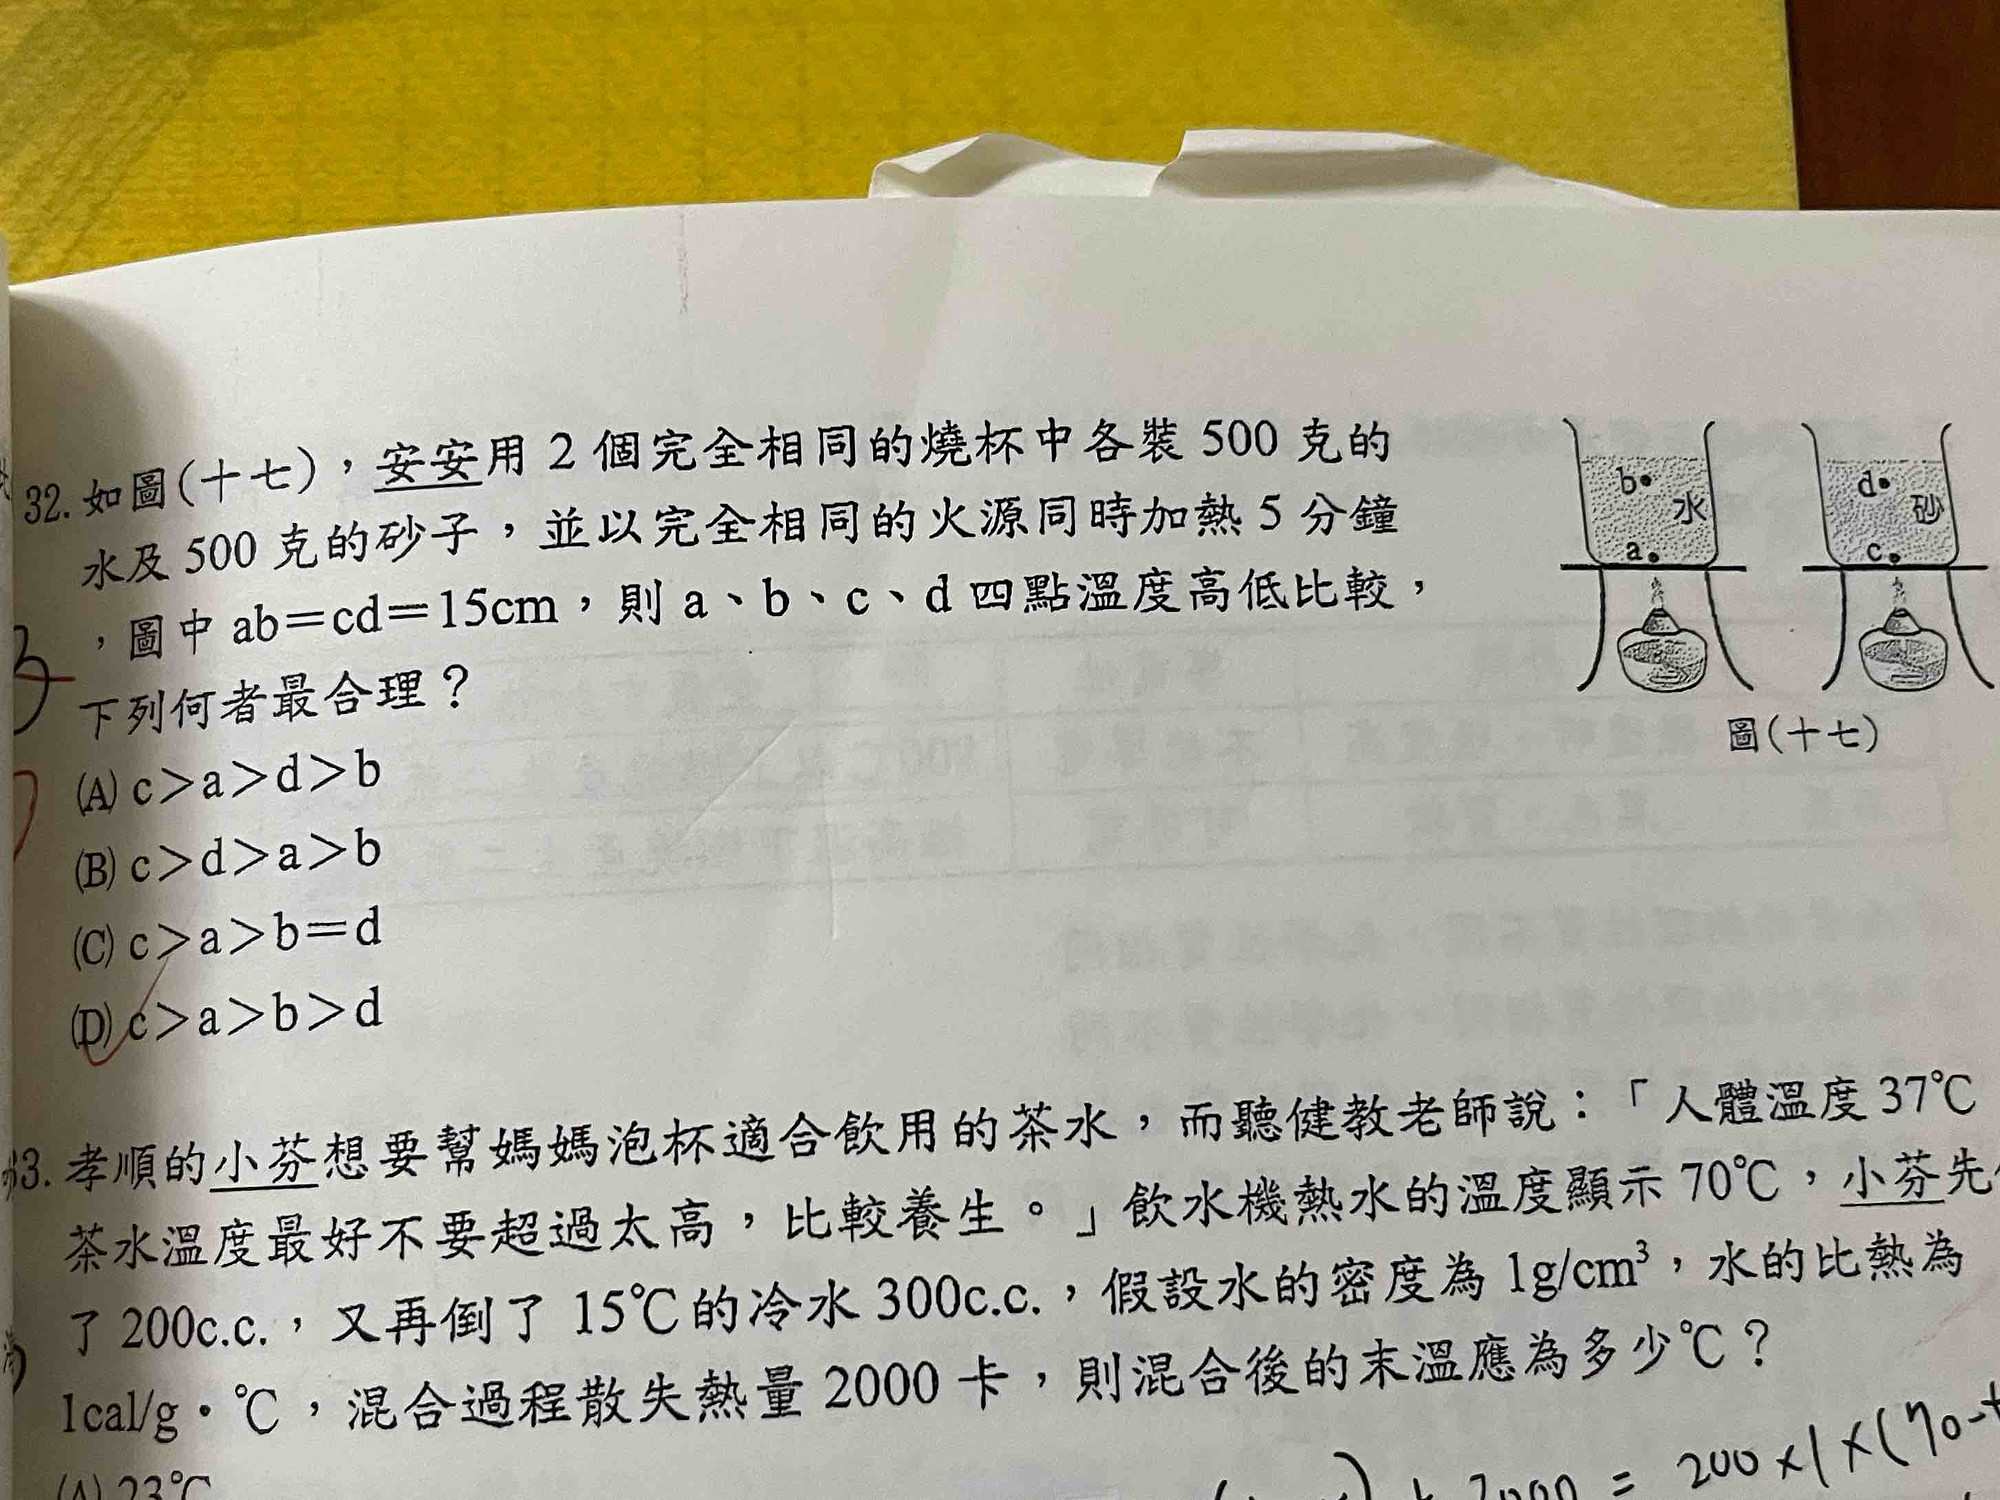 32. 如圖(十七),安安用 2 個完全相同的燒杯中各裝 500 克的
水及 500 克的砂子,並以完全相同的火源同時加熱 5 分鐘
,圖中 ab=cd=15cm,則 a、b、c、d 四點溫度高低比較,
下列何者最合理?
(A) c>a>d>b
(B) c>d>a>b
(C) c>a>b=d
(D) c>a>b>d
b
水
a
d
砂
c
圖(十七)
33. 孝順的小芬想要幫媽媽泡杯適合飲用的茶水,而聽健教老師說:「人體溫度 37℃
茶水溫度最好不要超過太高,比較養生。」飲水機熱水的溫度顯示 70℃,小芬先
了 200c.c.,又再倒了 15℃的冷水 300c.c.,假設水的密度為 1g/cm³,水的比熱為
1cal/g・℃,混合過程散失熱量 2000 卡,則混合後的末溫應為多少℃?
(A) 23℃
+ 2000 = 200×1×(70-t